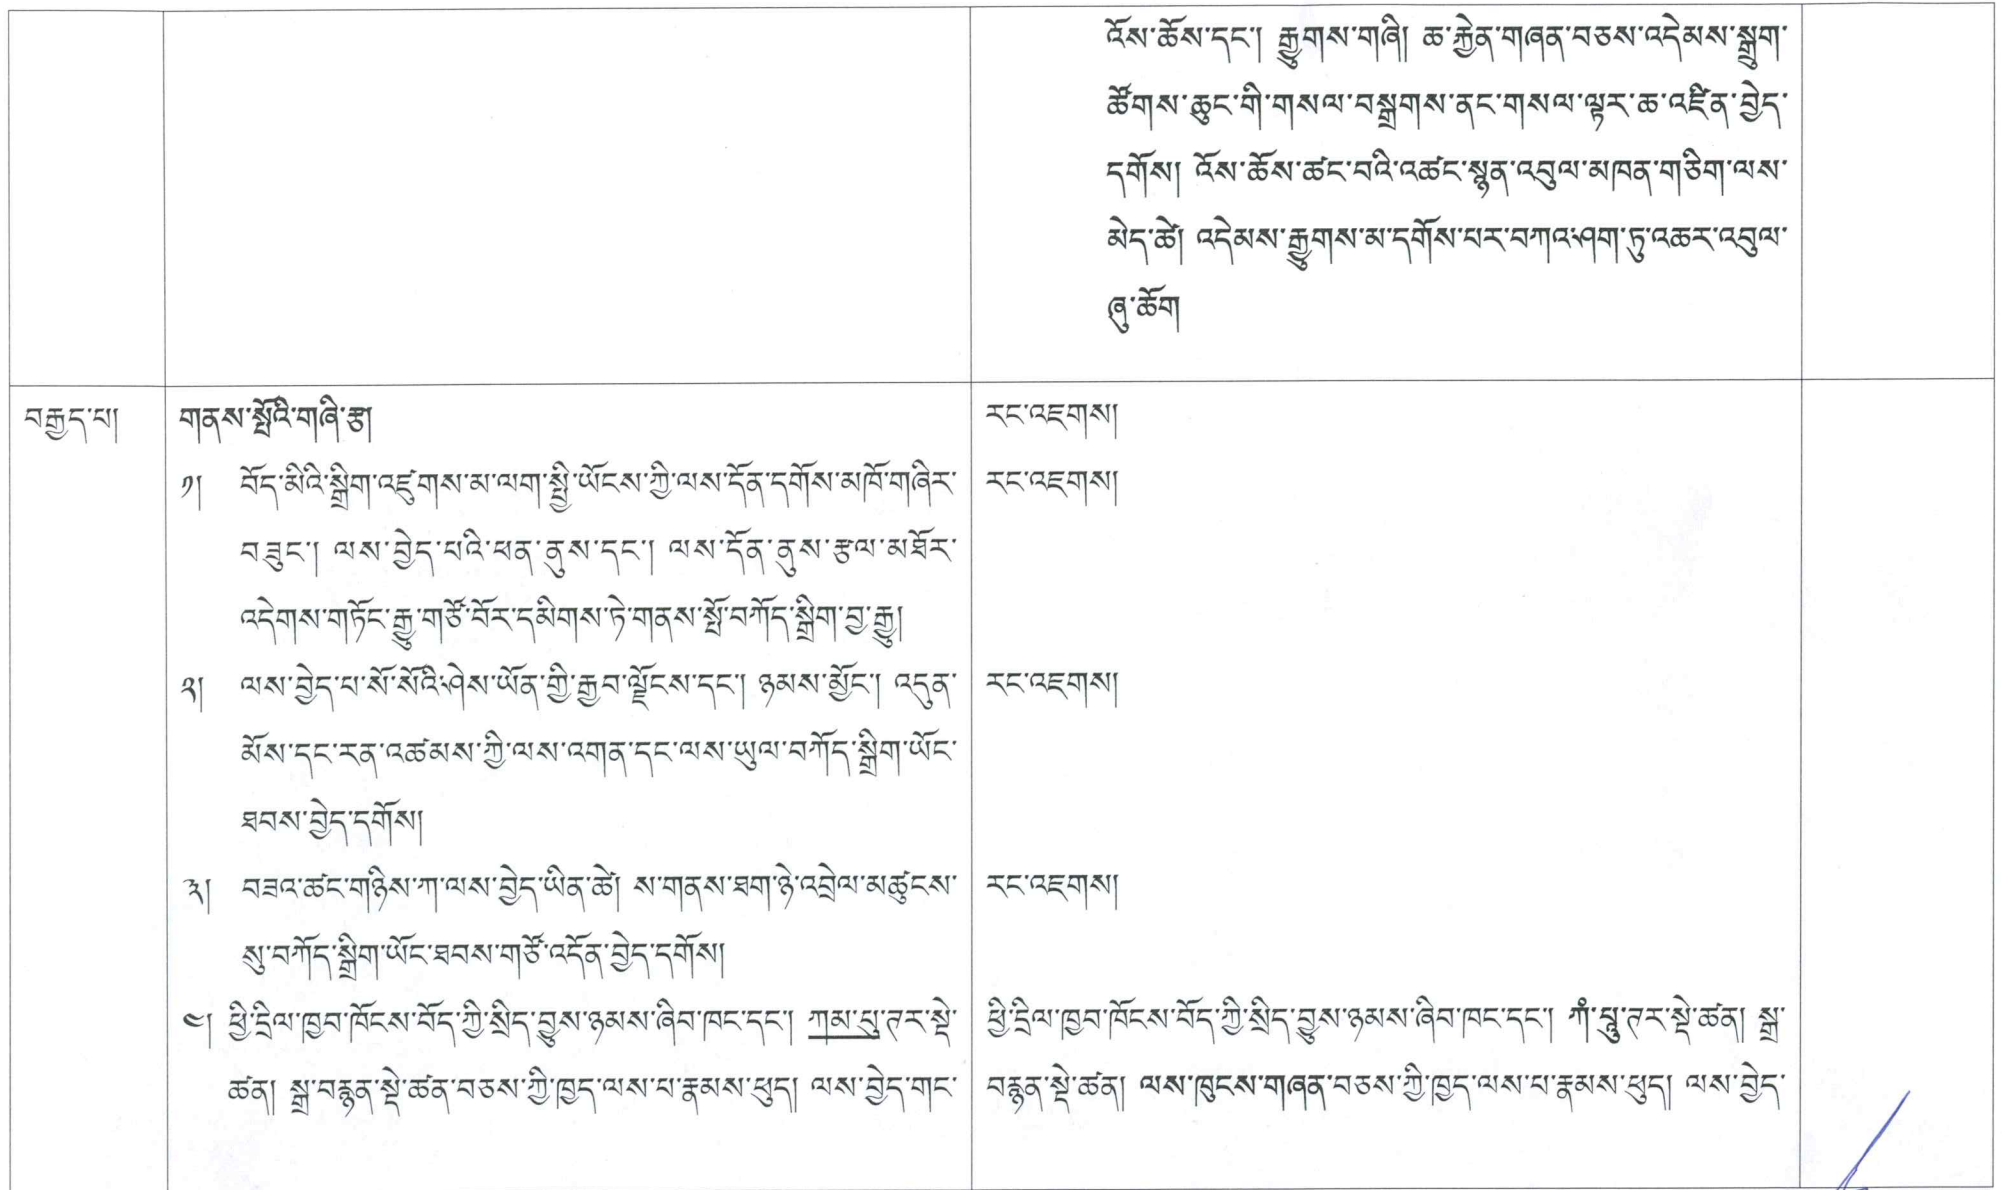 འོས་ཆོས་དང་། རྒྱུགས་གཞི། ཆ་རྐྱེན་གཞན་བཅས་འདེམས་སྒྲུག་
ཚོགས་ཆུང་གི་གསལ་བསྒྲགས་ནང་གསལ་ལྟར་ཆ་འཛིན་བྱེད་
དགོས། འོས་ཆོས་ཚང་བའི་འཚང་སྙན་འབུལ་མཁན་གཅིག་ལས་
མེད་ཚེ། འདེམས་རྒྱུགས་མ་དགོས་པར་བཀའ་ཤག་ཏུ་འཆར་འབུལ་
ཞུ་ཆོག
བརྒྱད་པ། གནས་སྤོའི་གཞི་རྩ། རང་འཇགས།
༡། བོད་མིའི་སྒྲིག་འཛུགས་མ་ལག་སྤྱི་ཡོངས་ཀྱི་ལས་དོན་དགོས་མཁོ་གཞིར་ རང་འཇགས།
བཟུང་། ལས་བྱེད་པའི་ཕན་ནུས་དང་། ལས་དོན་ནུས་རྩལ་མཐོར་
འདེགས་གཏོང་རྒྱུ་གཙོ་བོར་དམིགས་ཏེ་གནས་སྤོ་བཀོད་སྒྲིག་བྱ་རྒྱུ།
༢། ལས་བྱེད་པ་སོ་སོའི་ཤེས་ཡོན་གྱི་རྒྱབ་ལྗོངས་དང་། ཉམས་མྱོང་། འདུན་ རང་འཇགས།
མོས་དང་རན་འཚམས་ཀྱི་ལས་འགན་དང་ལས་ཡུལ་བཀོད་སྒྲིག་ཡོང་
ཐབས་བྱེད་དགོས།
༣། བཟའ་ཚང་གཉིས་ཀ་ལས་བྱེད་ཡིན་ཚེ། ས་གནས་ཐག་ཉེ་འབྲེལ་མཚུངས་ རང་འཇགས།
སུ་བཀོད་སྒྲིག་ཡོང་ཐབས་གཙོ་འདོན་བྱེད་དགོས།
༤། ཕྱི་དྲིལ་ཁྱབ་ཁོངས་བོད་ཀྱི་སྲིད་བྱུས་ཉམས་ཞིབ་ཁང་དང་། ཀམ་པུ་ཊར་སྡེ་ ཕྱི་དྲིལ་ཁྱབ་ཁོངས་བོད་ཀྱི་སྲིད་བྱུས་ཉམས་ཞིབ་ཁང་དང་། ཀཾ་པྱུ་ཊར་སྡེ་ཚན། སྒྲ་
ཚན། སྒྲ་བརྙན་སྡེ་ཚན་བཅས་ཀྱི་ཁྱད་ལས་པ་རྣམས་ཕུད། ལས་བྱེད་གང་ བརྙན་སྡེ་ཚན། ལས་ཁུངས་གཞན་བཅས་ཀྱི་ཁྱད་ལས་པ་རྣམས་ཕུད། ལས་བྱེད་